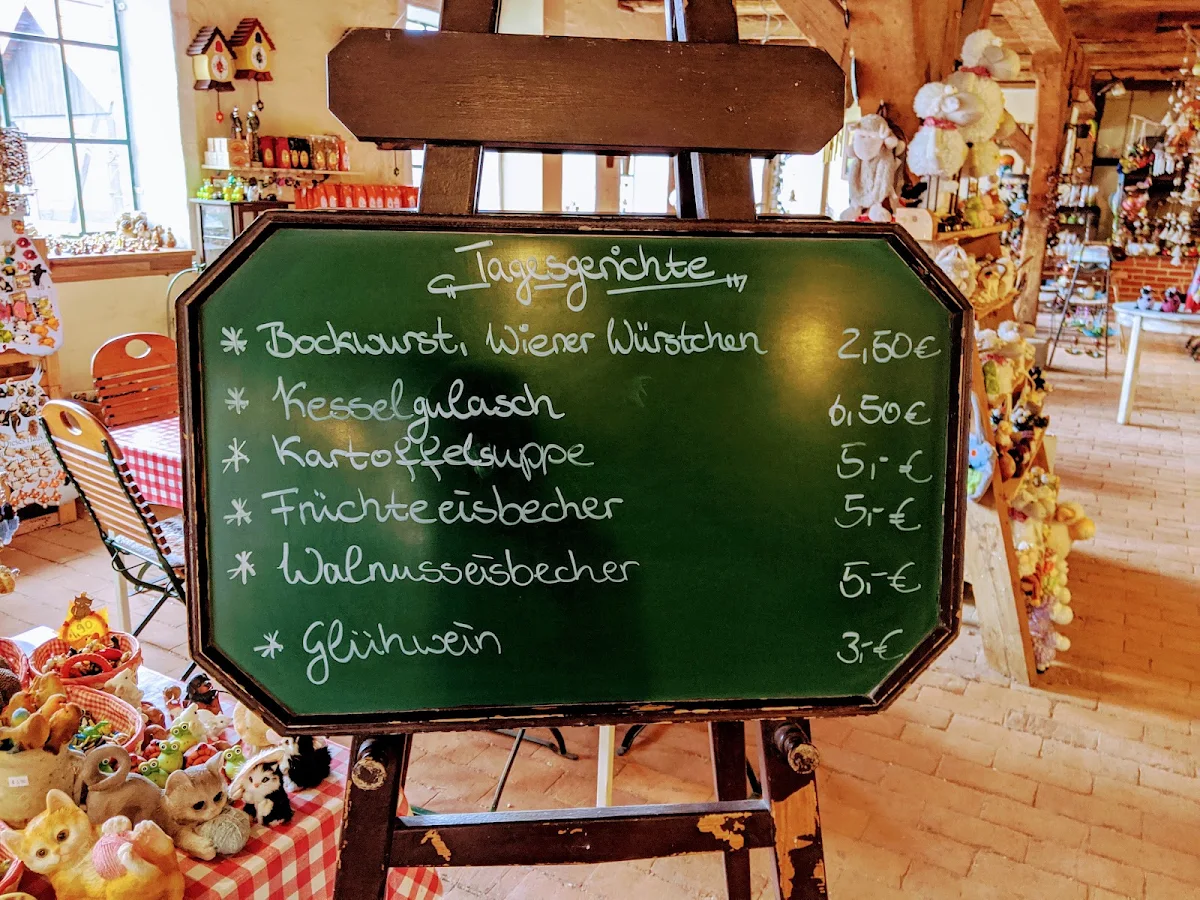 Tagesgerichte
* Bockwurst, Wiener Würstchen 2,50€
* Kesselgulasch 6,50€
* Kartoffelsuppe 5,-€
* Früchteeisbecher 5,-€
* Walnusseisbecher 5,-€
* Glühwein 3,-€
1,90